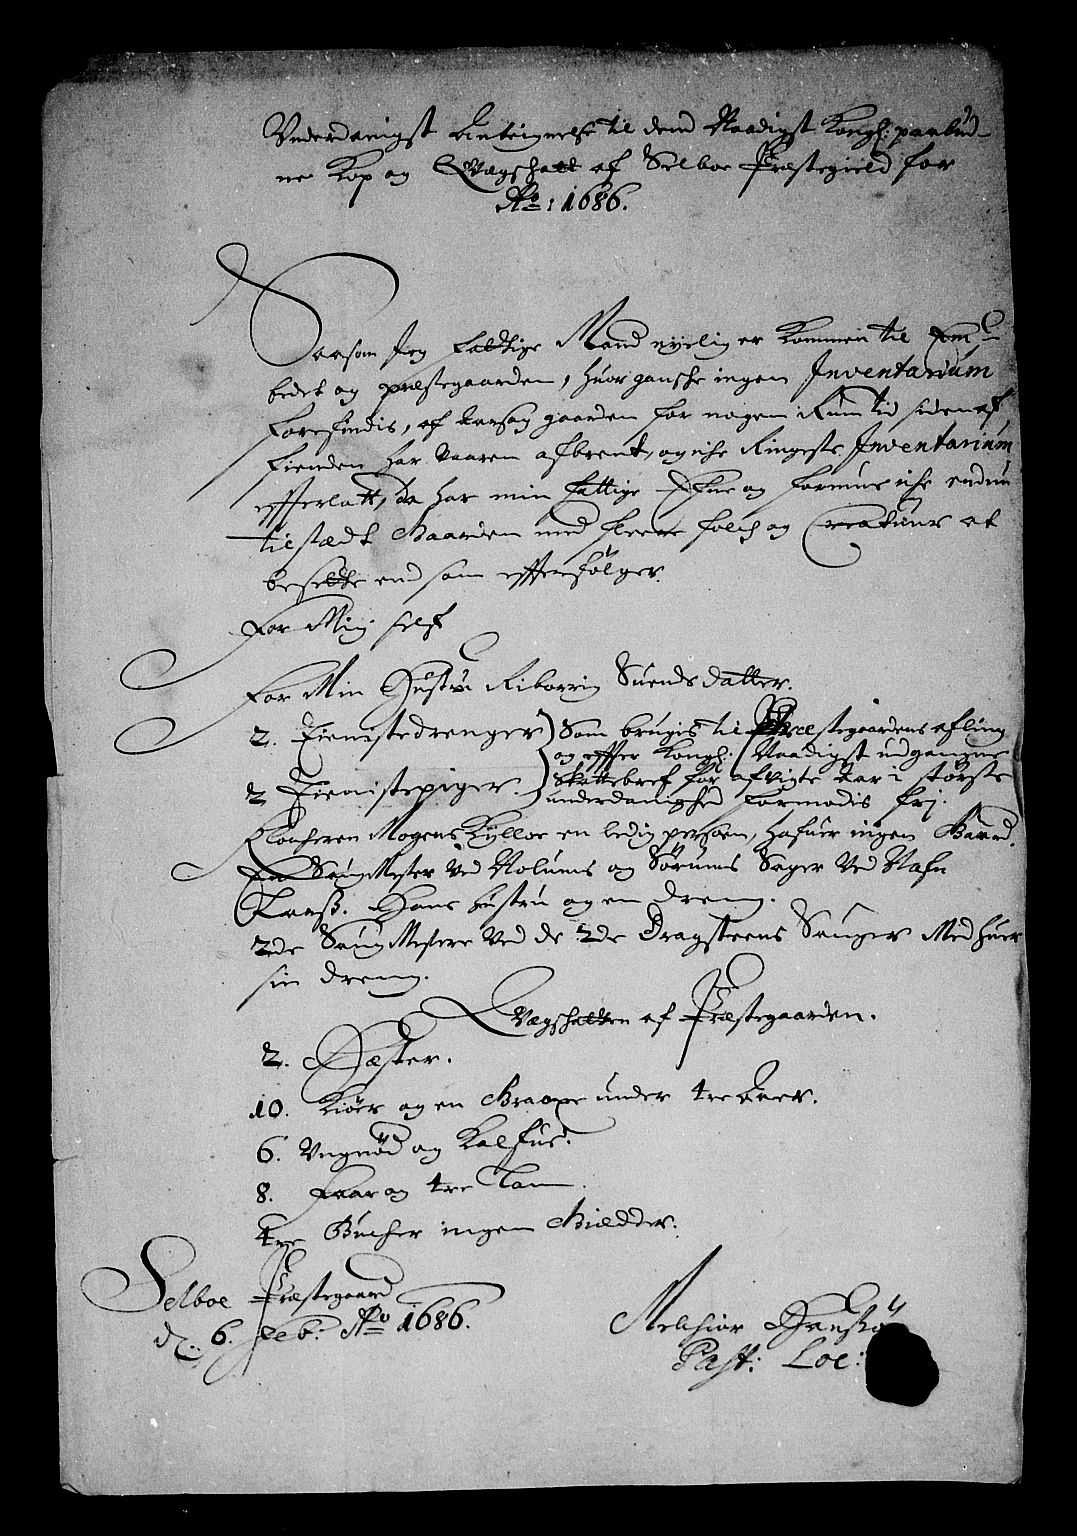 Underdanigst Anteignelse til dend Naadigst Kongl: paabud-
ne Kop og Qvægskatt af Selboe Præstegield for
Ao: 1686.
Saasom Jeg fattige Mand nyelig er kommen til Em-
bedet og præstegaarden, huor ganske ingen Inventarium
forefindis, af aarsag gaarden for nogen Rum tid siden af
fienden har vaaren afbrent, og iche Ringeste Inventarium
efterlatt, da har min fattige Efne og formue iche endnu
tilstædt Gaarden med fleere folch og Creatuur at
besette end som efterfølger.
For Mig self
For Min Hustru Reborrig Suends datter.
2. Tienistedrenger Som brugis til Præstegaardens afling
og effter Kongl: Naadigst udgangne
2 Tienistepiger. Skattebref for afvigte aar i største
underdanighed formodis frj.
Klocheren Mogens Kylloe en ledig person, hafuer ingen Gaard.
En SaugMester ved Nolums og Sørums Sager ved Nafn
Larss. Hans hustru og en dreng.
2de SaugMestere ved de 2de Dragsteens Sauger Med huer
sin dreng.
Qvægskatten af Præstegaarden.
2. Hæster.
10. Kiør og en Graaxe under tre Aar.
6. Ungnød og Kalfue.
8. Faar og tre Lam.
tre Bucher ingen Giædder.
Selboe Præstegaard
d. 6. Feb: Ao 1686.
Melchior
Past: Loc: